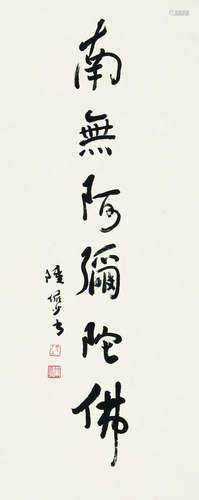 南無阿彌陀佛
陸儼少書